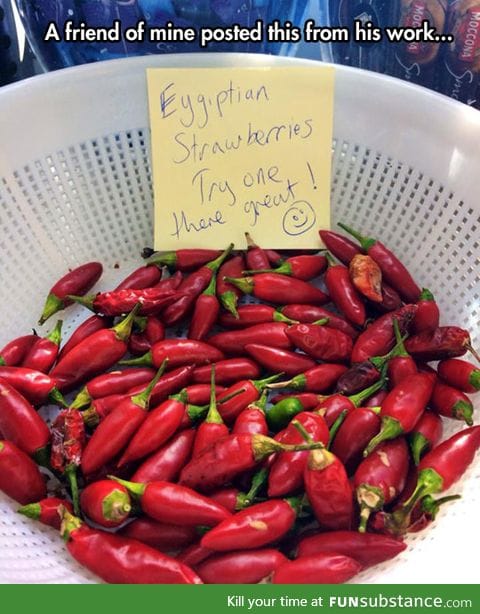 A friend of mine posted this from his work...
MOCCONA
MOCCONA
Eygiptian
Strawberries
Try one
there great! ☺
Kill your time at FUNsubstance.com